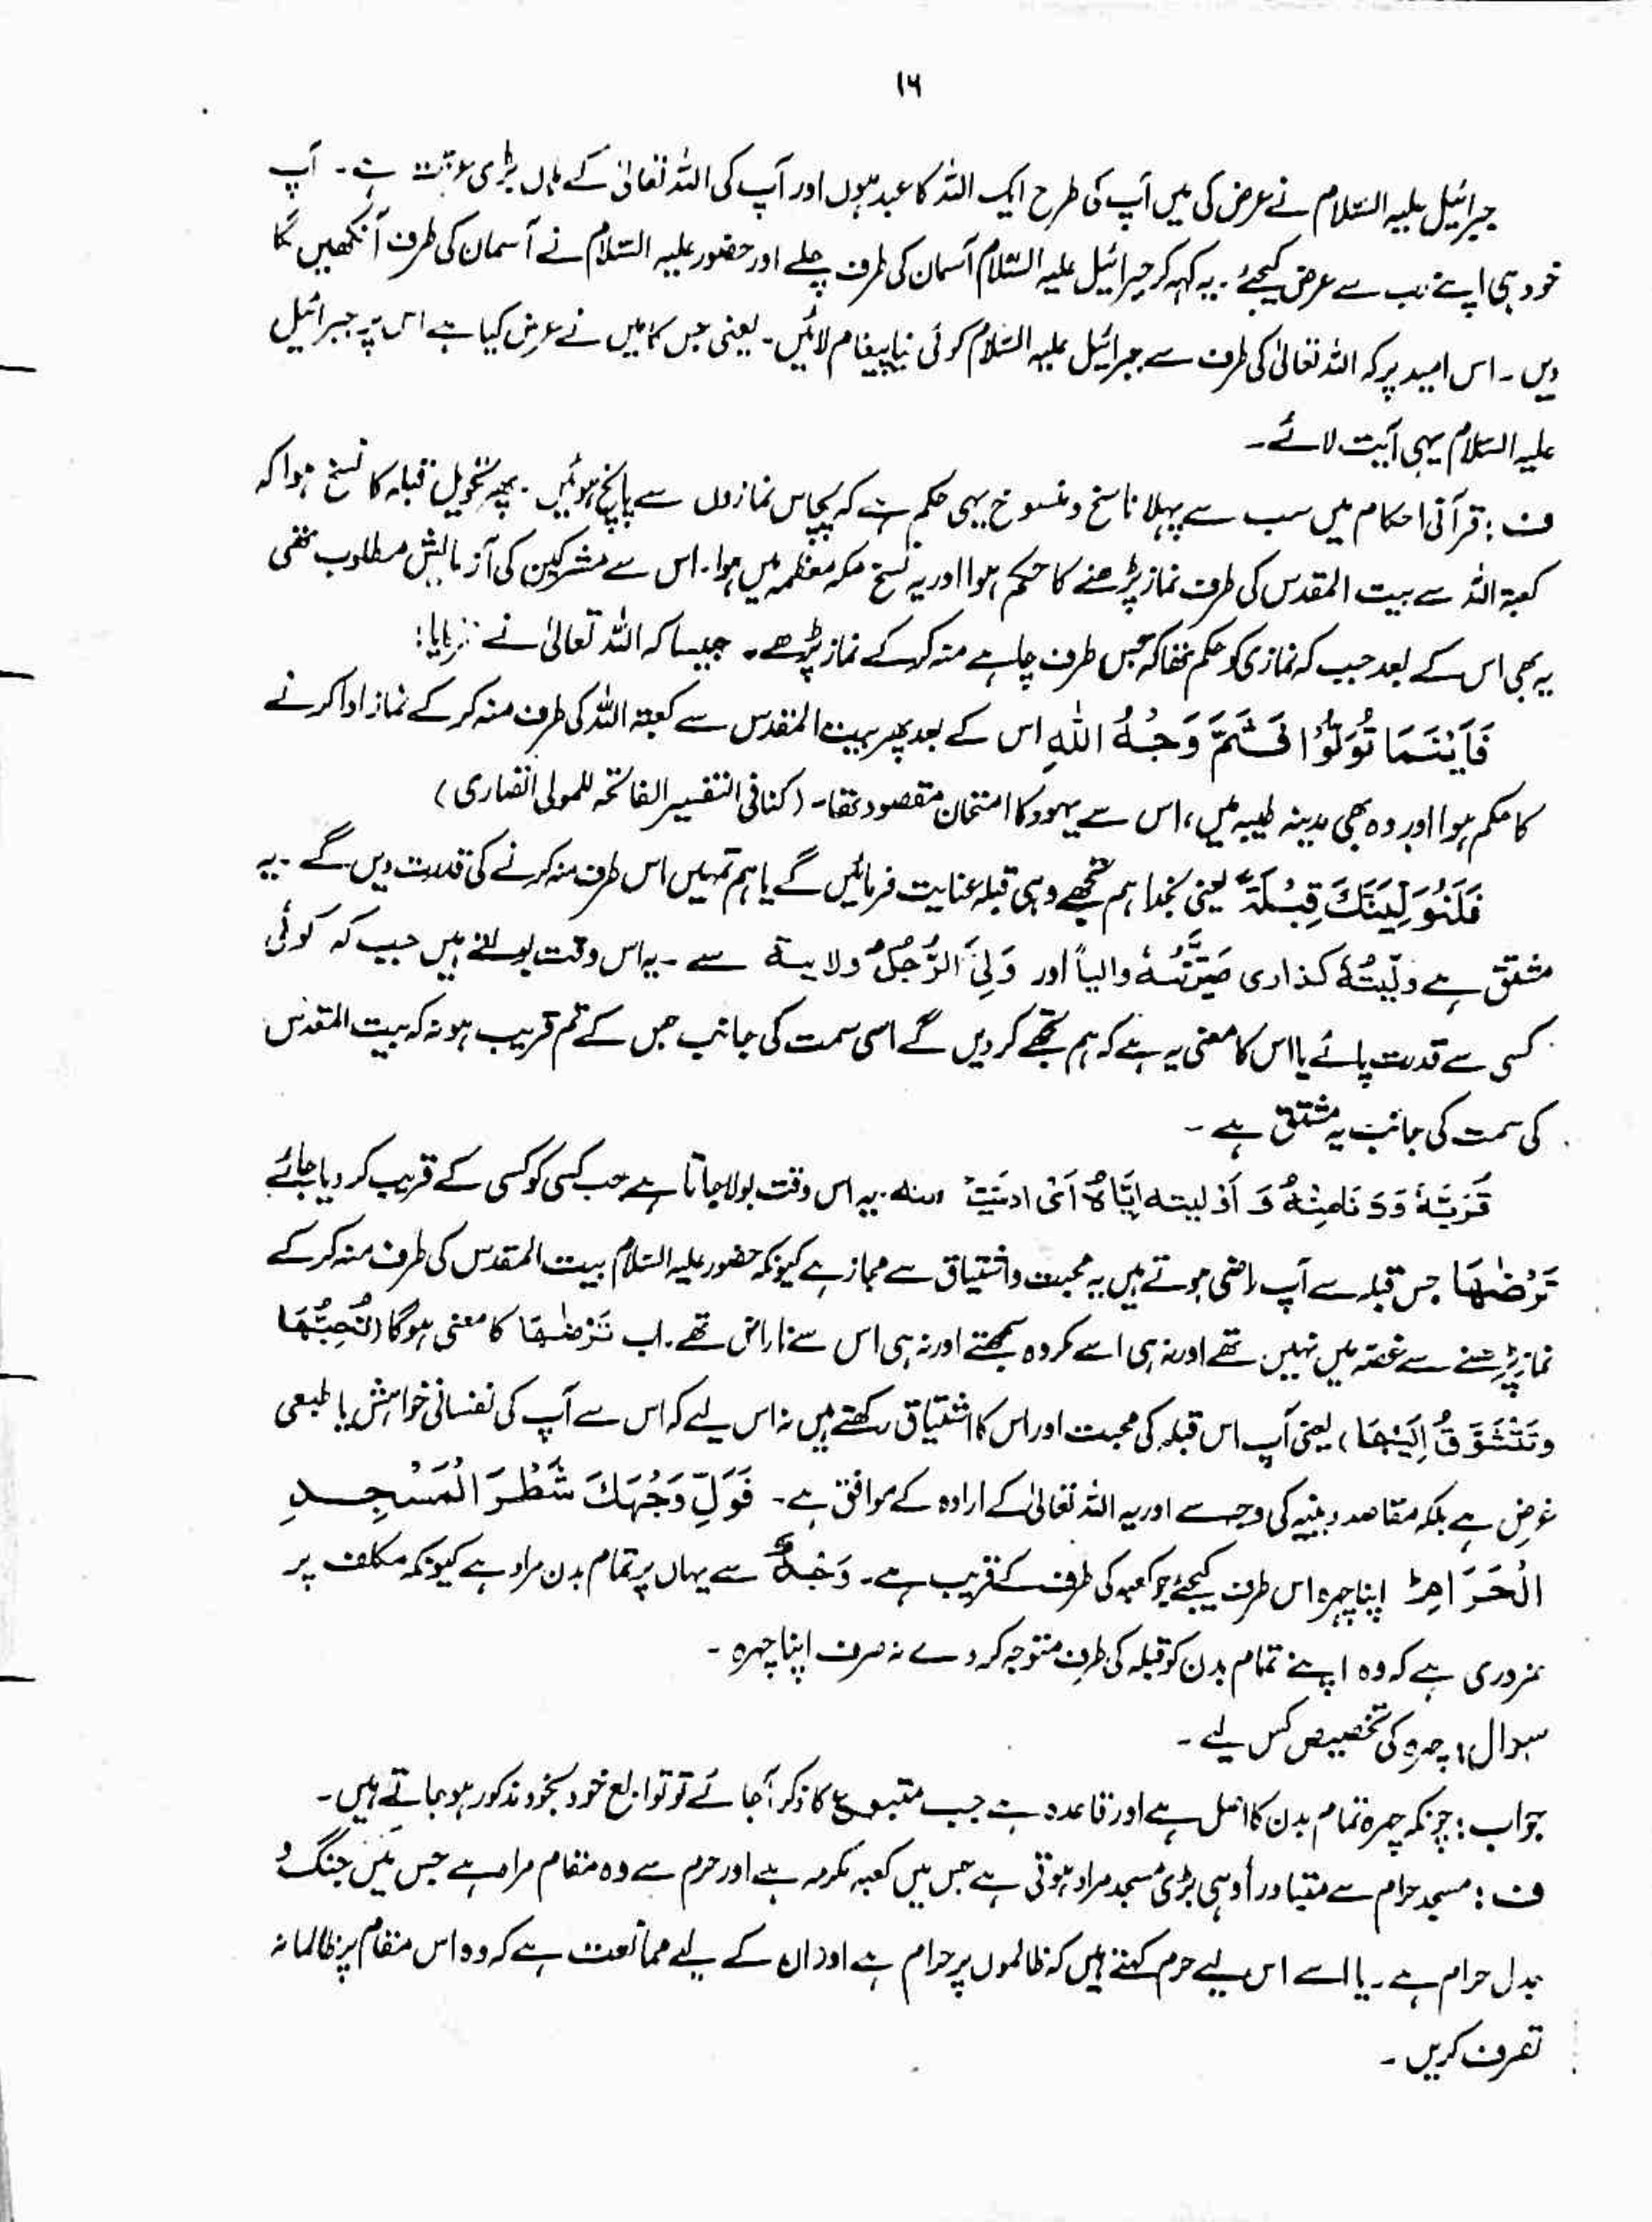 ۱۶
جبرائیل علیہ السّلام نے عرض کی میں آپ کی طرح ایک اللہ کا عبد ہوں اور آپ کی اللہ تعالیٰ کے ہاں بڑی عزّت ہے۔ آپ
خود ہی اپنے رب سے عرض کیجئے۔ یہ کہہ کر جبرائیل علیہ السّلام آسمان کی طرف چلے اور حضور علیہ السّلام نے آسمان کی طرف آنکھیں لگا
دیں۔ اس امید پر کہ اللہ تعالیٰ کی طرف سے جبرائیل علیہ السّلام کوئی نیا پیغام لائیں۔ یعنی جس کا میں نے عرض کیا ہے اس پر جبرائیل
علیہ السّلام یہی آیت لائے۔
ف : قرآنی احکام میں سب سے پہلا ناسخ و منسوخ یہی حکم ہے کہ پچاس نمازوں سے پانچ ہوئیں۔ پھر تحویل قبلہ کا نسخ ہوا کہ
کعبۃ اللہ سے بیت المقدس کی طرف نماز پڑھنے کا حکم ہوا اور یہ نسخ مکہ معظمہ میں ہوا۔ اس سے مشرکین کی آزمائش مطلوب تھی
یہ بھی اس کے بعد جب کہ نمازی کو حکم تھا کہ جس طرف چاہے منہ کر کے نماز پڑھے۔ جیسا کہ اللہ تعالیٰ نے فرمایا :
فَاَیْنَمَا تُوَلُّوْا فَثَمَّ وَجْہُ اللہِ اس کے بعد پھر بیت المقدس سے کعبۃ اللہ کی طرف منہ کر کے نماز ادا کرنے
کا حکم ہوا اور وہ بھی مدینہ طیبہ میں، اس سے یہود کا امتحان مقصود تھا۔ (کذا فی التفسیر الفاتحہ للمولی الفناری)
فَلَنُوَلِّیَنَّکَ قِبْلَۃً یعنی بخدا ہم تجھے وہی قبلہ عنایت فرمائیں گے یا ہم تمہیں اس طرف منہ کرنے کی قدرت دیں گے۔ یہ
مشتق ہے ولّیتُہٗ کذا ری صَیَّرْتُہٗ والیاً اور وَلِیَ الرَّجُلُ ولایۃ سے۔ یہ اس وقت بولتے ہیں جب کہ کوئی
کسی سے قدرت پائے یا اس کا معنی یہ ہے کہ ہم تجھے کر دیں گے اسی سمت کی جانب جس کے تم قریب ہو نہ کہ بیت المقدس
کی سمت کی جانب یہ مشتق ہے۔
قَرَبَۃٗ وَدَنَامِنْہُ وَ اَوْلیتہ اِیَّاہُ اَیْ ادنَیْتُ منہ۔ یہ اس وقت بولا جاتا ہے جب کسی کو کسی کے قریب کر دیا جائے
تَرْضٰھَا جس قبلہ سے آپ راضی ہوتے ہیں یہ محبت و اشتیاق سے مجاز ہے کیونکہ حضور علیہ السّلام بیت المقدس کی طرف منہ کر کے
نماز پڑھنے سے غصّہ میں نہیں تھے اور نہ ہی اسے مکروہ سمجھتے اور نہ ہی اس سے ناراض تھے۔ اب تَرْضٰھَا کا معنی ہو گا (تُحِبُّھَا
وتَتَشَوَّقُ اِلَیْھَا) یعنی آپ اس قبلہ کی محبت اور اس کا اشتیاق رکھتے ہیں نہ اس لیے کہ اس سے آپ کی نفسانی خواہش یا طبعی
غرض ہے بلکہ مقاصد دینیہ کی وجہ سے اور یہ اللہ تعالیٰ کے ارادہ کے موافق ہے۔ فَوَلِّ وَجْہَکَ شَطْرَ الْمَسْجِدِ
الْحَرَامِ ط اپنا چہرہ اس طرف کیجئے جو کعبہ کی طرف کے قریب ہے۔ وَجْہٌ سے یہاں پر تمام بدن مراد ہے کیونکہ مکلف پر
ضروری ہے کہ وہ اپنے تمام بدن کو قبلہ کی طرف متوجہ کر دے نہ صرف اپنا چہرہ۔
سوال : چہرہ کی تخصیص کس لیے۔
جواب : چونکہ چہرہ تمام بدن کا اصل ہے اور قاعدہ ہے جب متبوع کا ذکر آ جائے تو توابع خود بخود مذکور ہو جاتے ہیں۔
ف : مسجد حرام سے متبادر اً وہی بڑی مسجد مراد ہوتی ہے جس میں کعبہ مکرمہ ہے اور حرم سے وہ مقام مراد ہے جس میں جنگ و
جدل حرام ہے۔ یا اسے اس لیے حرم کہتے ہیں کہ ظالموں پر حرام ہے اور ان کے لیے ممانعت ہے کہ وہ اس مقام پر ظالمانہ
تصرف کریں۔